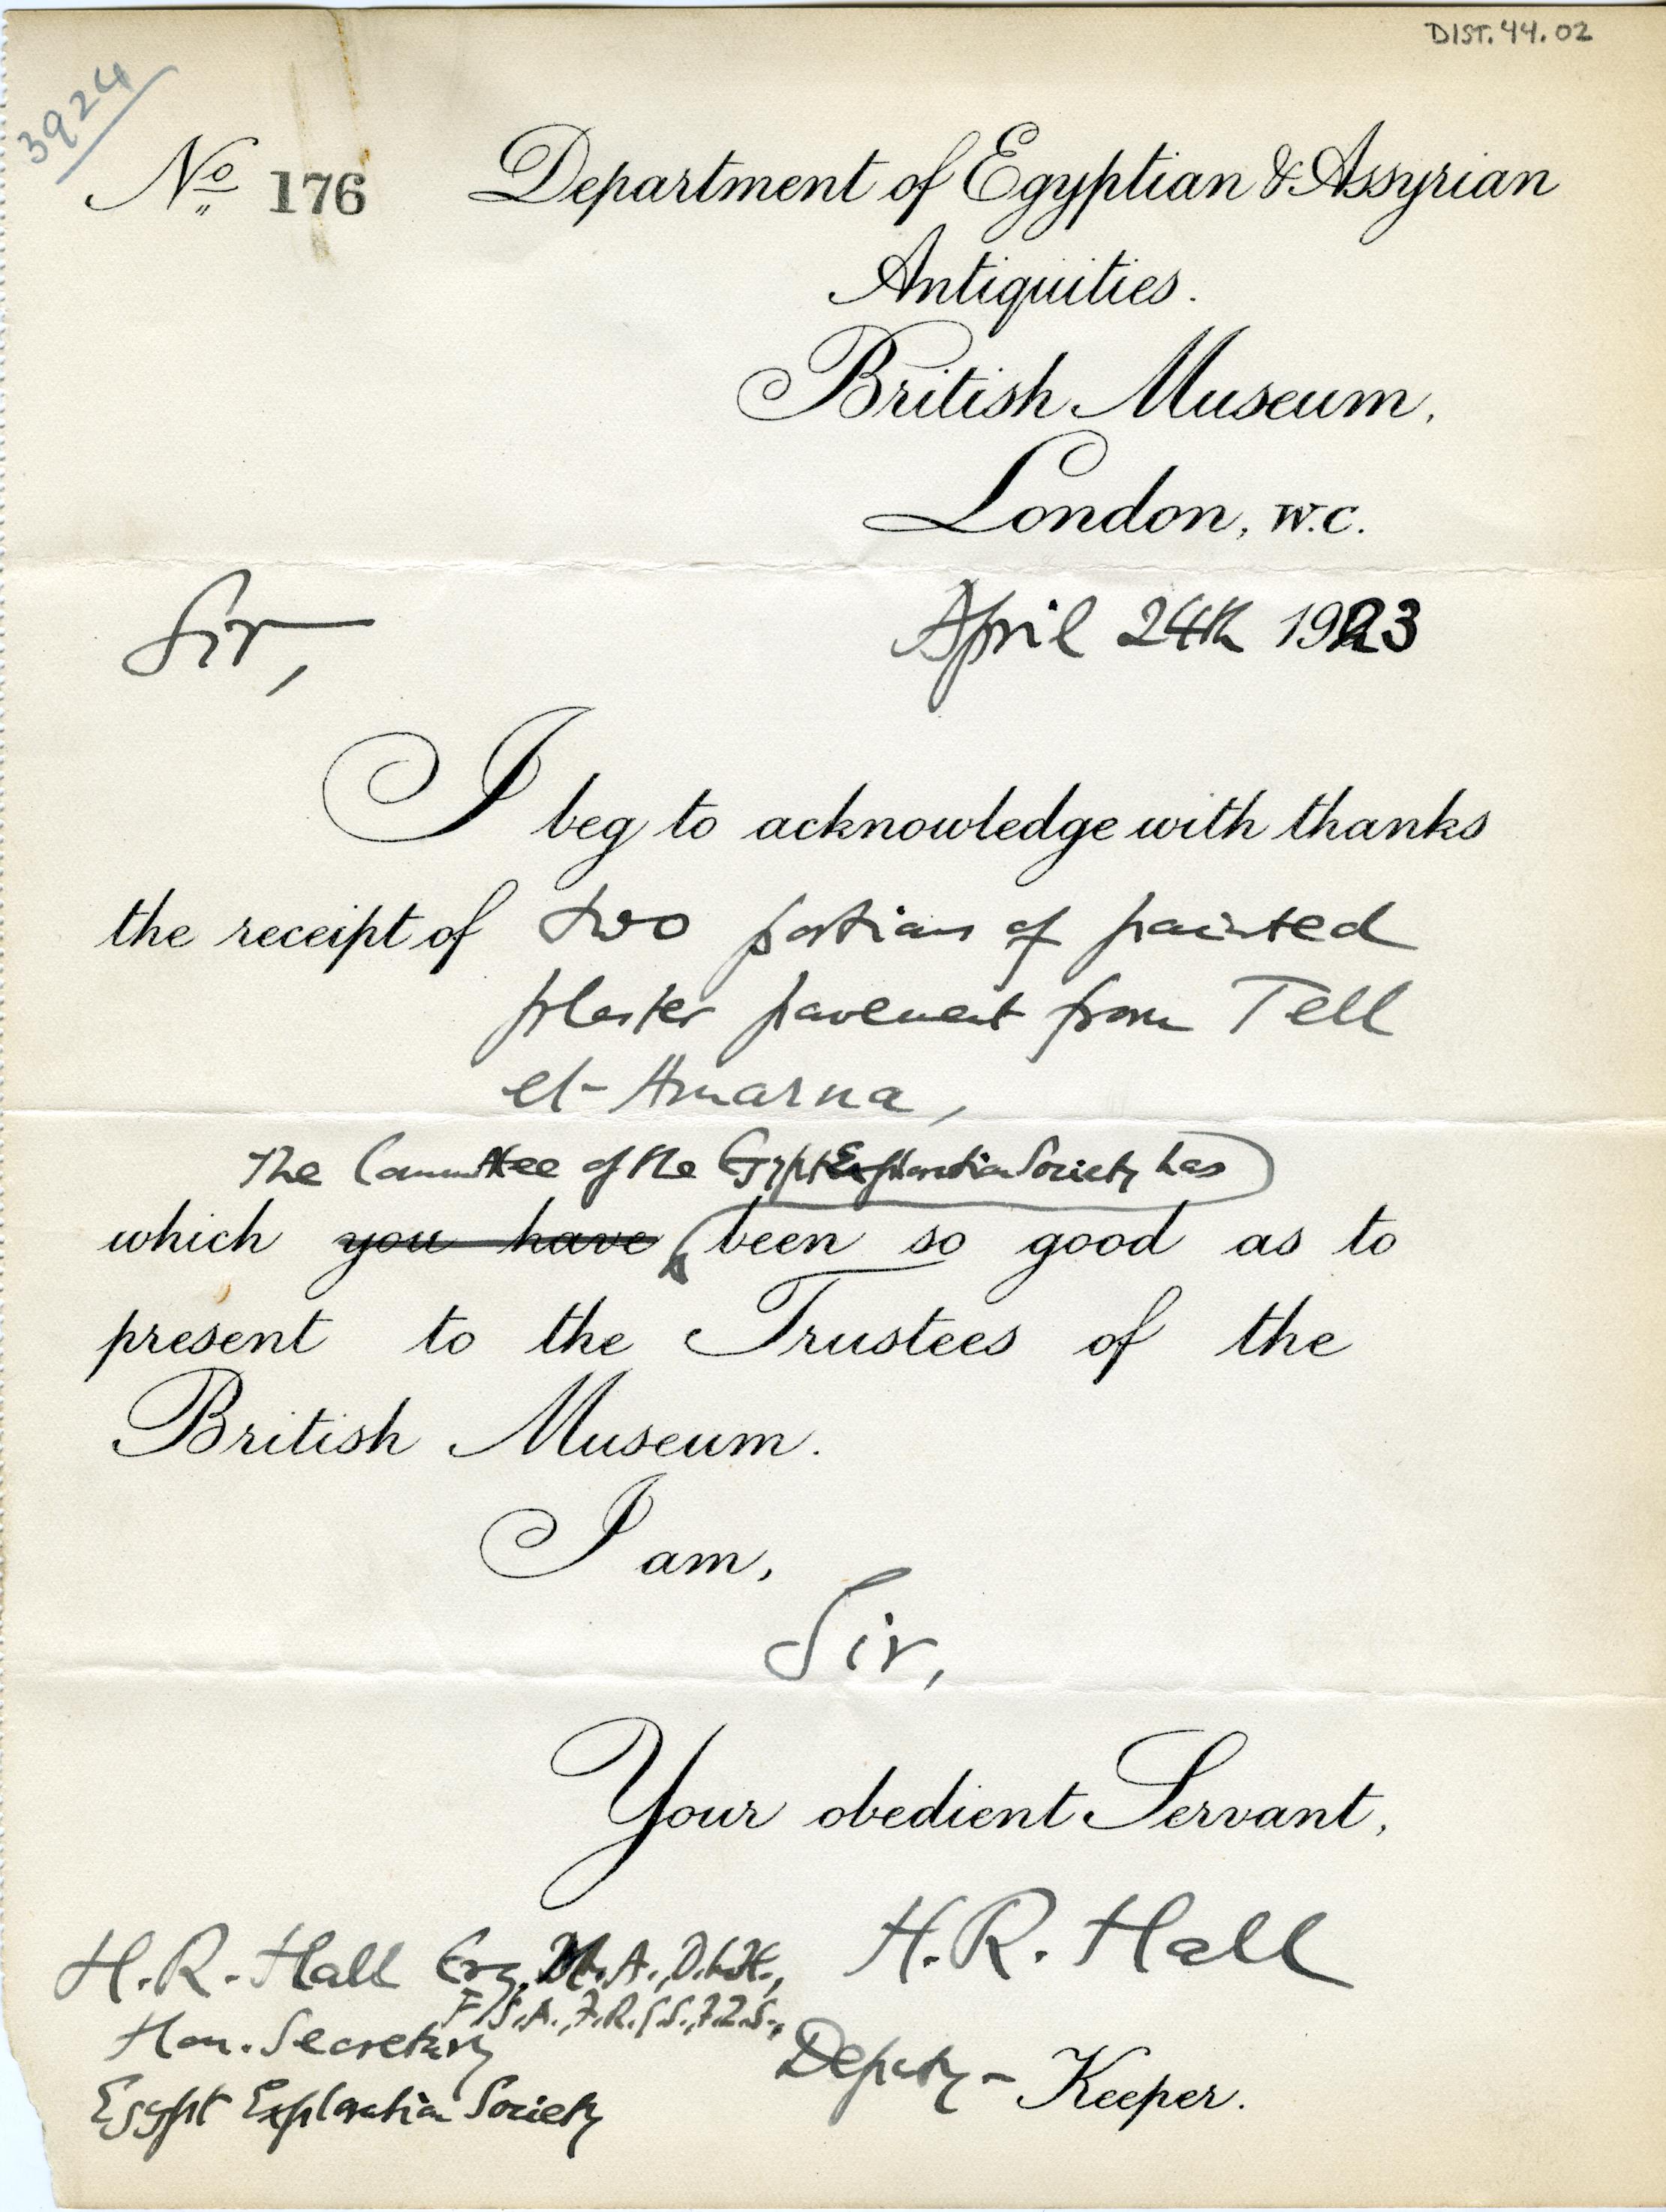 DIST.44.02
3924
No 176 Department of Egyptian & Assyrian
Antiquities.
British Museum,
London, W.C.
April 24th 1923
Sir,
I beg to acknowledge with thanks
the receipt of two portions of painted
plaster pavement from Tell
el-Amarna,
The Committee of the Egypt Exploration Society has
which you have been so good as to
present to the Trustees of the
British Museum.
I am,
Sir,
Your obedient Servant,
H.R. Hall
H.R. Hall Esq, M.A., D.Litt.,
F.S.A., F.R.G.S., F.Z.S.,
Hon. Secretary
Egypt Exploration Society
Deputy-Keeper.